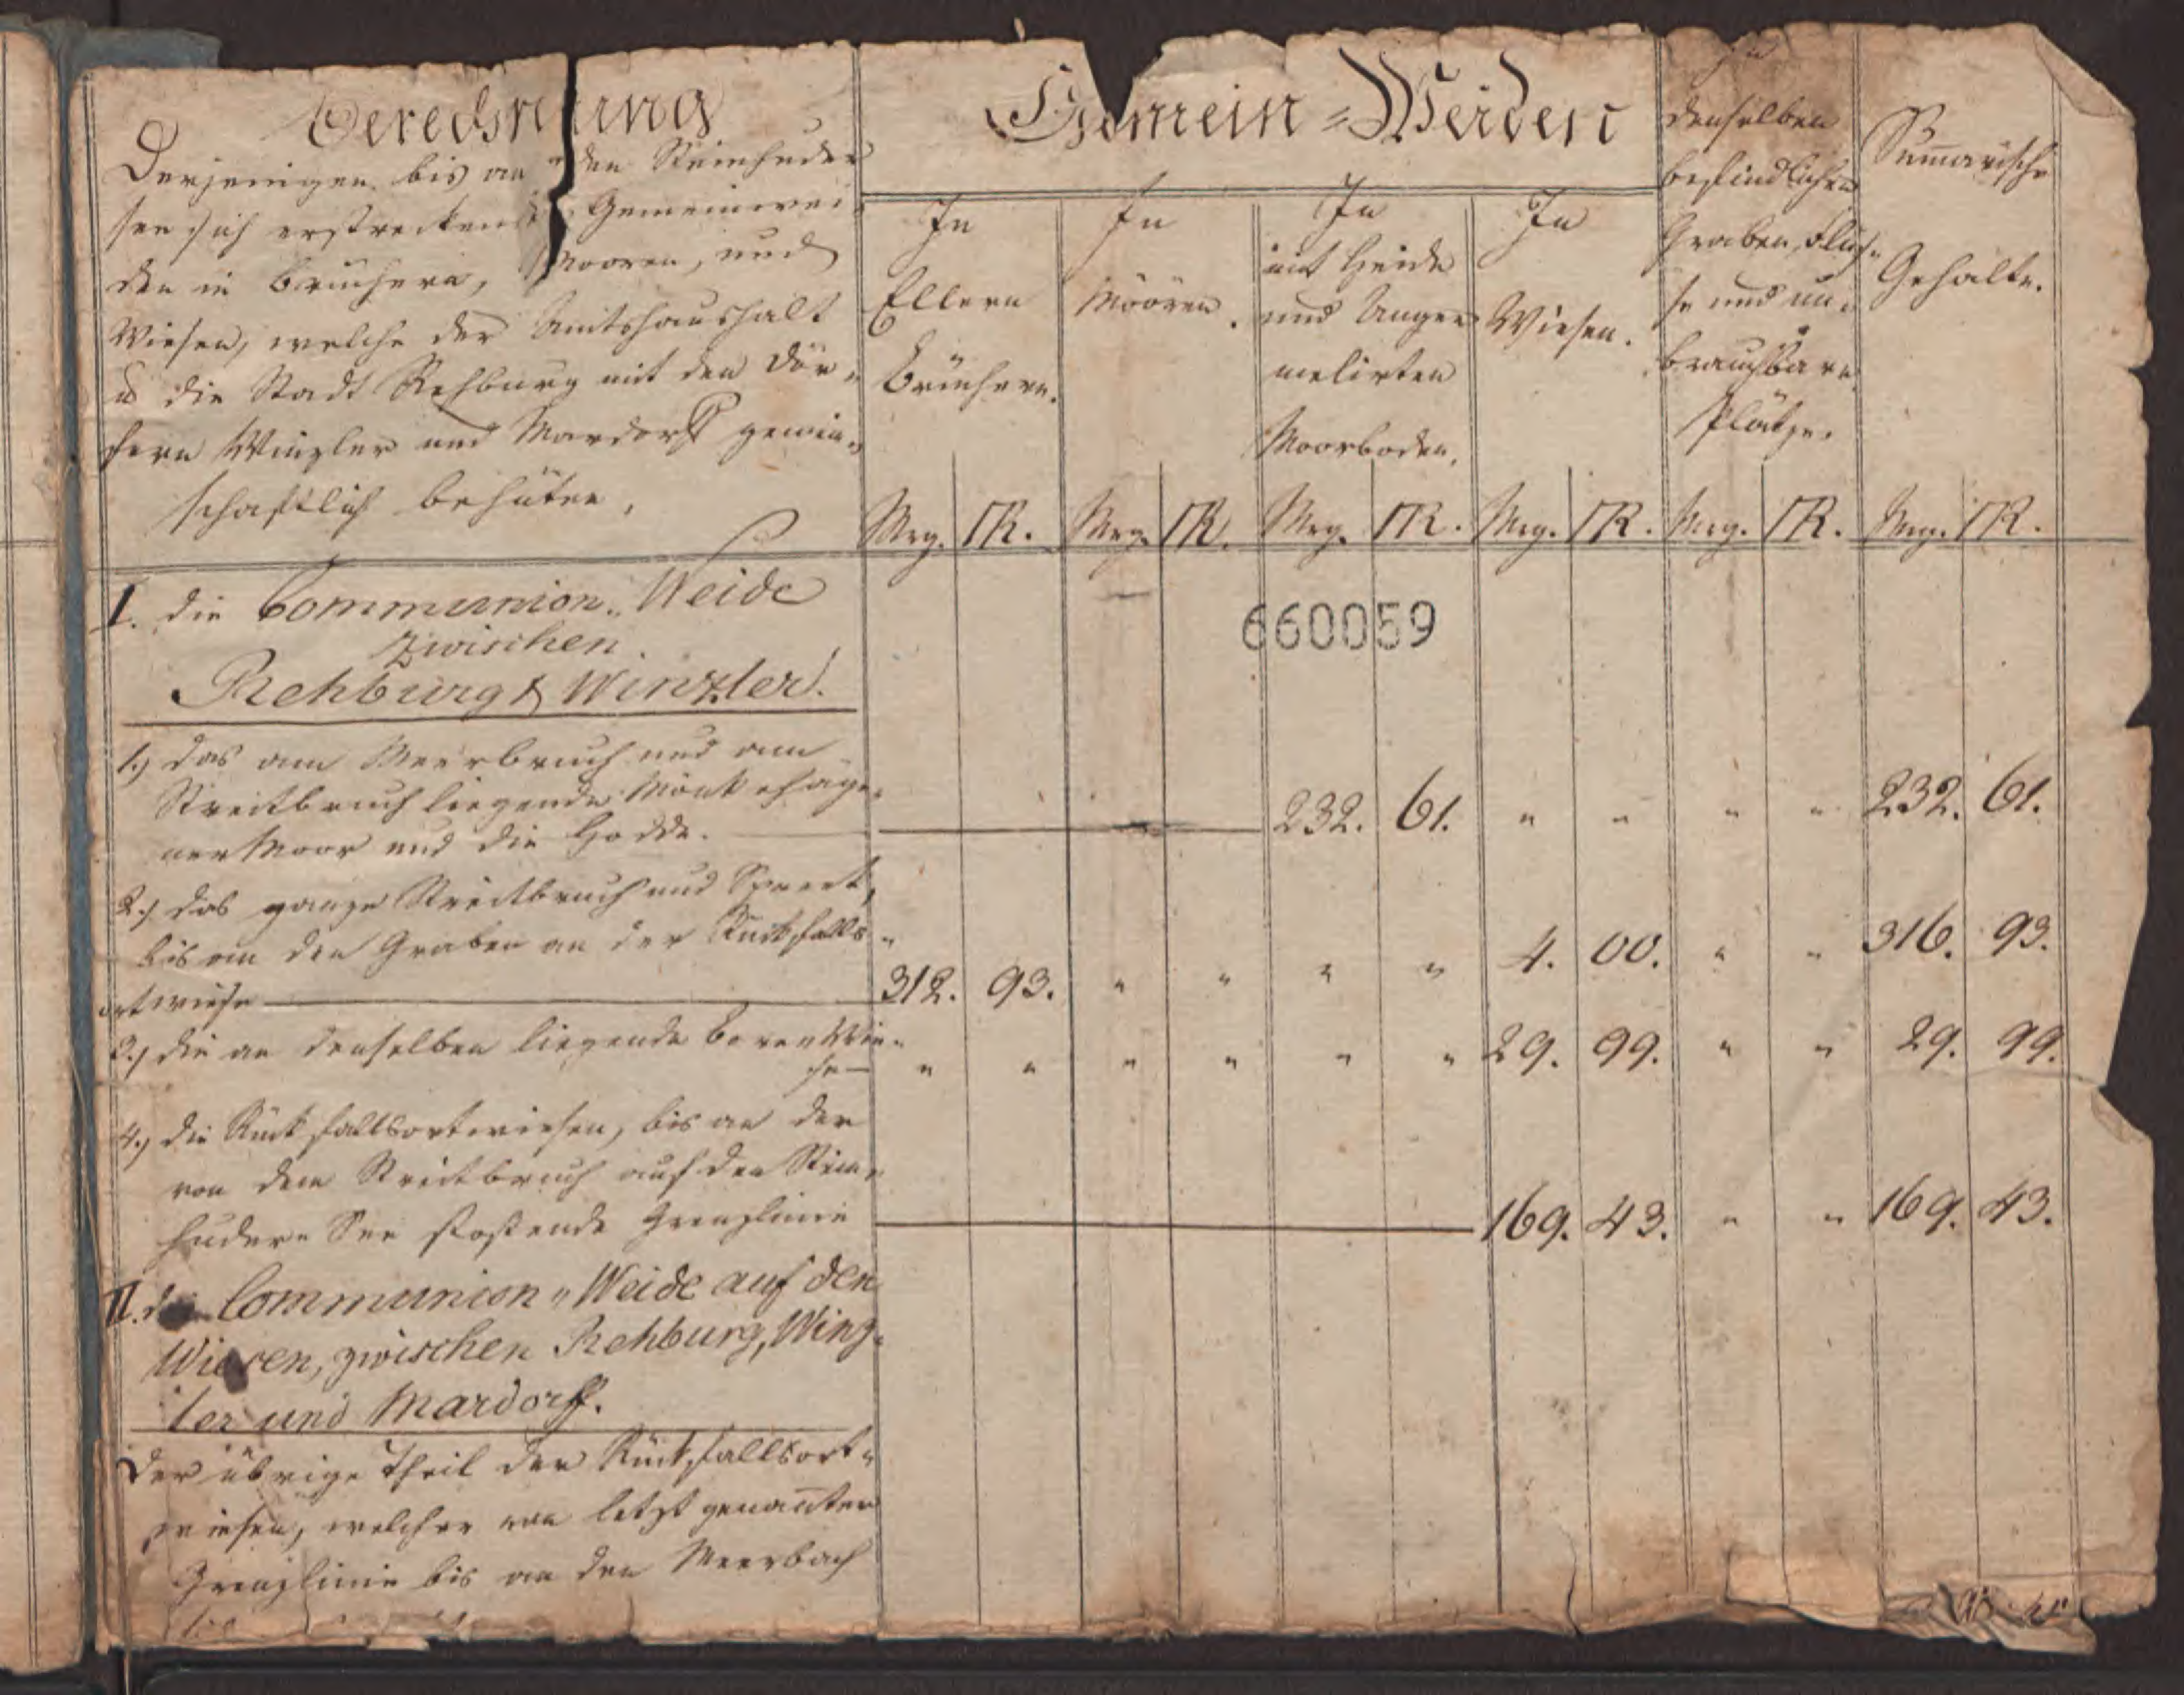 Berechnung
Derjenigen bis an den Steinhuder
See sich erstreckenden Gemeinwei-
den in Brüchern, Mooren, und
Wiesen, welche der Amtshaushalt
u die Stadt Rehburg mit den Dör-
fern Winzler und Mardorff gemein-
schaftlich behüten,
Gemein-Weiden
In
Ellern
Brüchern.
In
Möören.
In
mit Heide
und Anger
melirten
Moorboden.
In
Wiesen.
In
denselben
befindlichen
Graben, Flüs-
se und un-
brauchbare
Plätze.
Sumarische
Gehalte.
Mrg. R. Mrg. R. Mrg. R. Mrg. R. Mrg. R. Mrg. R.
I. die Communion-Weide
zwischen
Rehburg & Winzler.
660059
1.) das am Meerbruch und am
Streitbruch liegende
ner Moor und die Hodde. 232. 61. " " " " 232. 61.
2.) das ganze Streitbruch und
bis an den Graben an der Rückfalls-
ortwiese 312. 93. " " " " 4. 00. " " 316. 93.
3.) die an denselben liegende Wie-
se " " " " " " 29. 99. " " 29. 99.
4.) die Rückfallsortwiesen, bis an der
von dem Streitbruch auf den Stein-
huder-See stoßende Grenzlinie 169. 43. " " 169. 43.
II. die Communion-Weide auf den
Wiesen, zwischen Rehburg, Winz-
ler und Mardorff.
Der übrige Theil der Rückfallsort-
wiesen, welcher von letzt genanter
Grenzlinie bis an den Meerbach